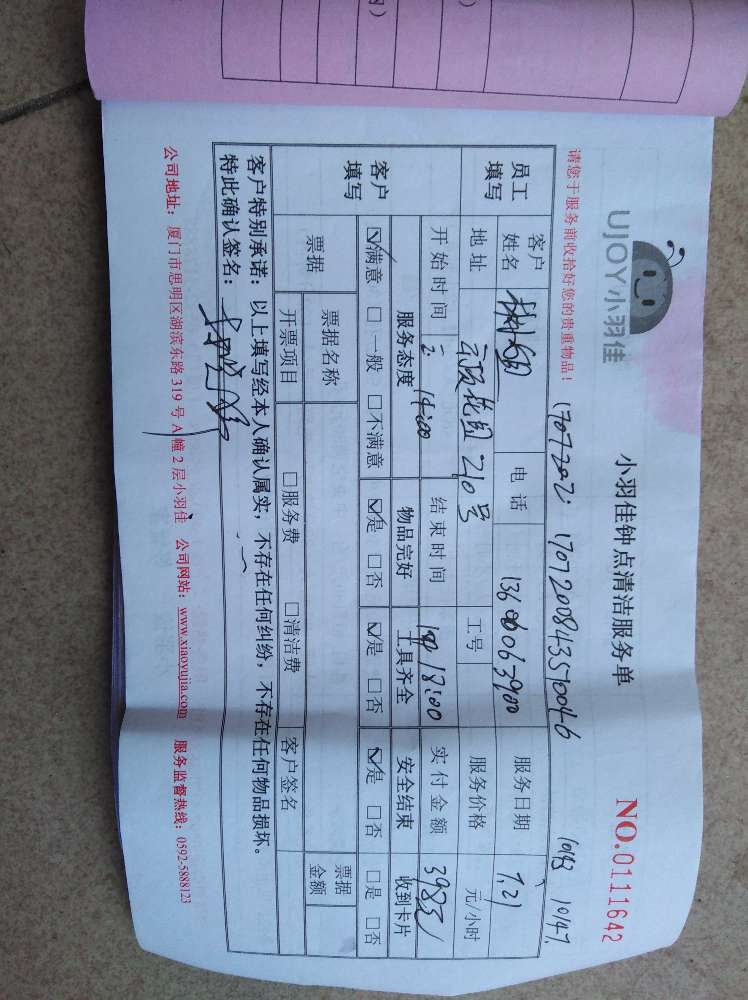 UJOY小羽佳
小羽佳钟点清洁服务单
NO.0111642
请您于服务前收拾好您的贵重物品！
170720843570046
员工填写
客户姓名
电话
服务日期 7.21
地址 210号
工号
服务价格 元/小时
开始时间 14:00
结束时间 18:00
实付金额
客户填写
服务态度 物品完好 工具齐全 安全结束 收到卡片
☑满意 □一般 □不满意 ☑是 □否 ☑是 □否 ☑是 □否 □是 □否
票据
票据名称
票据金额
开票项目 □服务费 □清洁费 客户签名
客户特别承诺：以上填写经本人确认属实，不存在任何纠纷，不存在任何物品损坏。
特此确认签名：
公司地址：厦门市思明区湖滨东路 319 号 A 幢 2 层小羽佳 公司网站：www.xiaoyujia.com 服务监督热线：0592-5888123